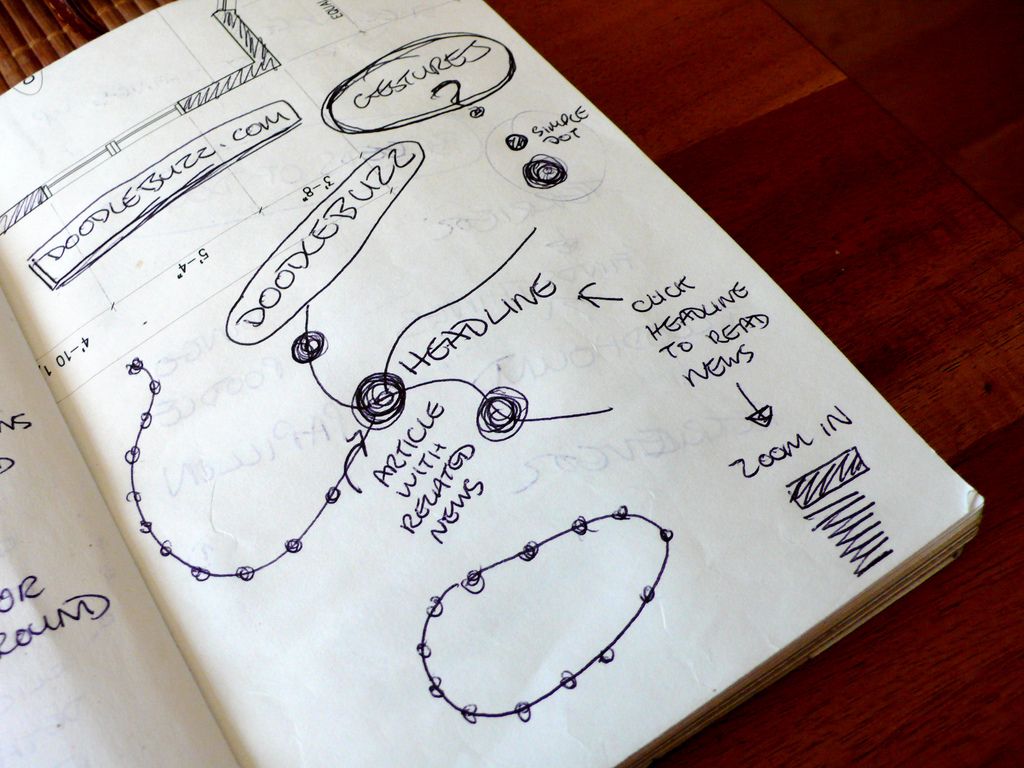 EQUAL
GESTURES
?
SIMPLE
DOT
DOODLEBUZZ.COM
DOODLEBUZZ
3'-8"
5'-4"
4'-10
HEADLINE
CLICK
HEADLINE
TO READ
NEWS
ZOOM IN
ARTICLE
WITH
RELATED
NEWS
OR
ROUND